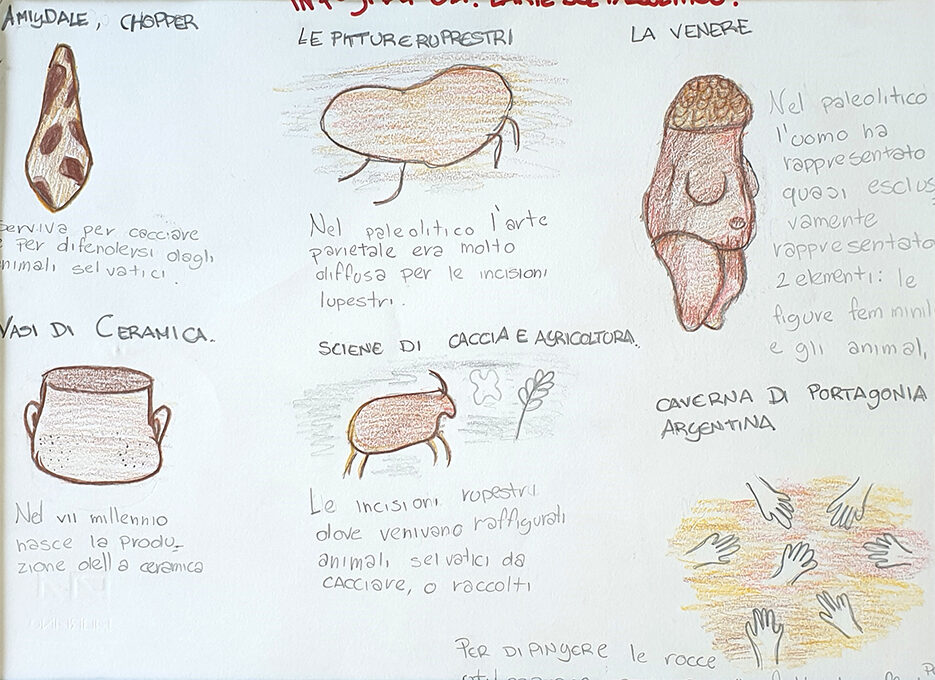 AMIGDALE, CHOPPER
serviva per cacciare
e per difendersi dagli
nimali selvatici.
LE PITTURE RUPRESTRI
Nel paleolitico l'arte
parietale era molto
diffusa per le incisioni
lupestri.
LA VENERE
Nel paleolitico
l'uomo ha
rappresentato
quasi esclus
vamente
rappresentato
2 elementi: le
figure femminil
e gli animal,
VASI DI CERAMICA.
Nel VII millennio
nasce la produ-
zione della ceramica
SCIENE DI CACCIA E AGRICOLTORA.
Le incisioni rupestri
dove venivano raffigurati
animali selvatici da
CACCIARE, o raccolti
CAVERNA DI PORTAGONIA
ARGENTINA
PER DIPINGERE le rocce